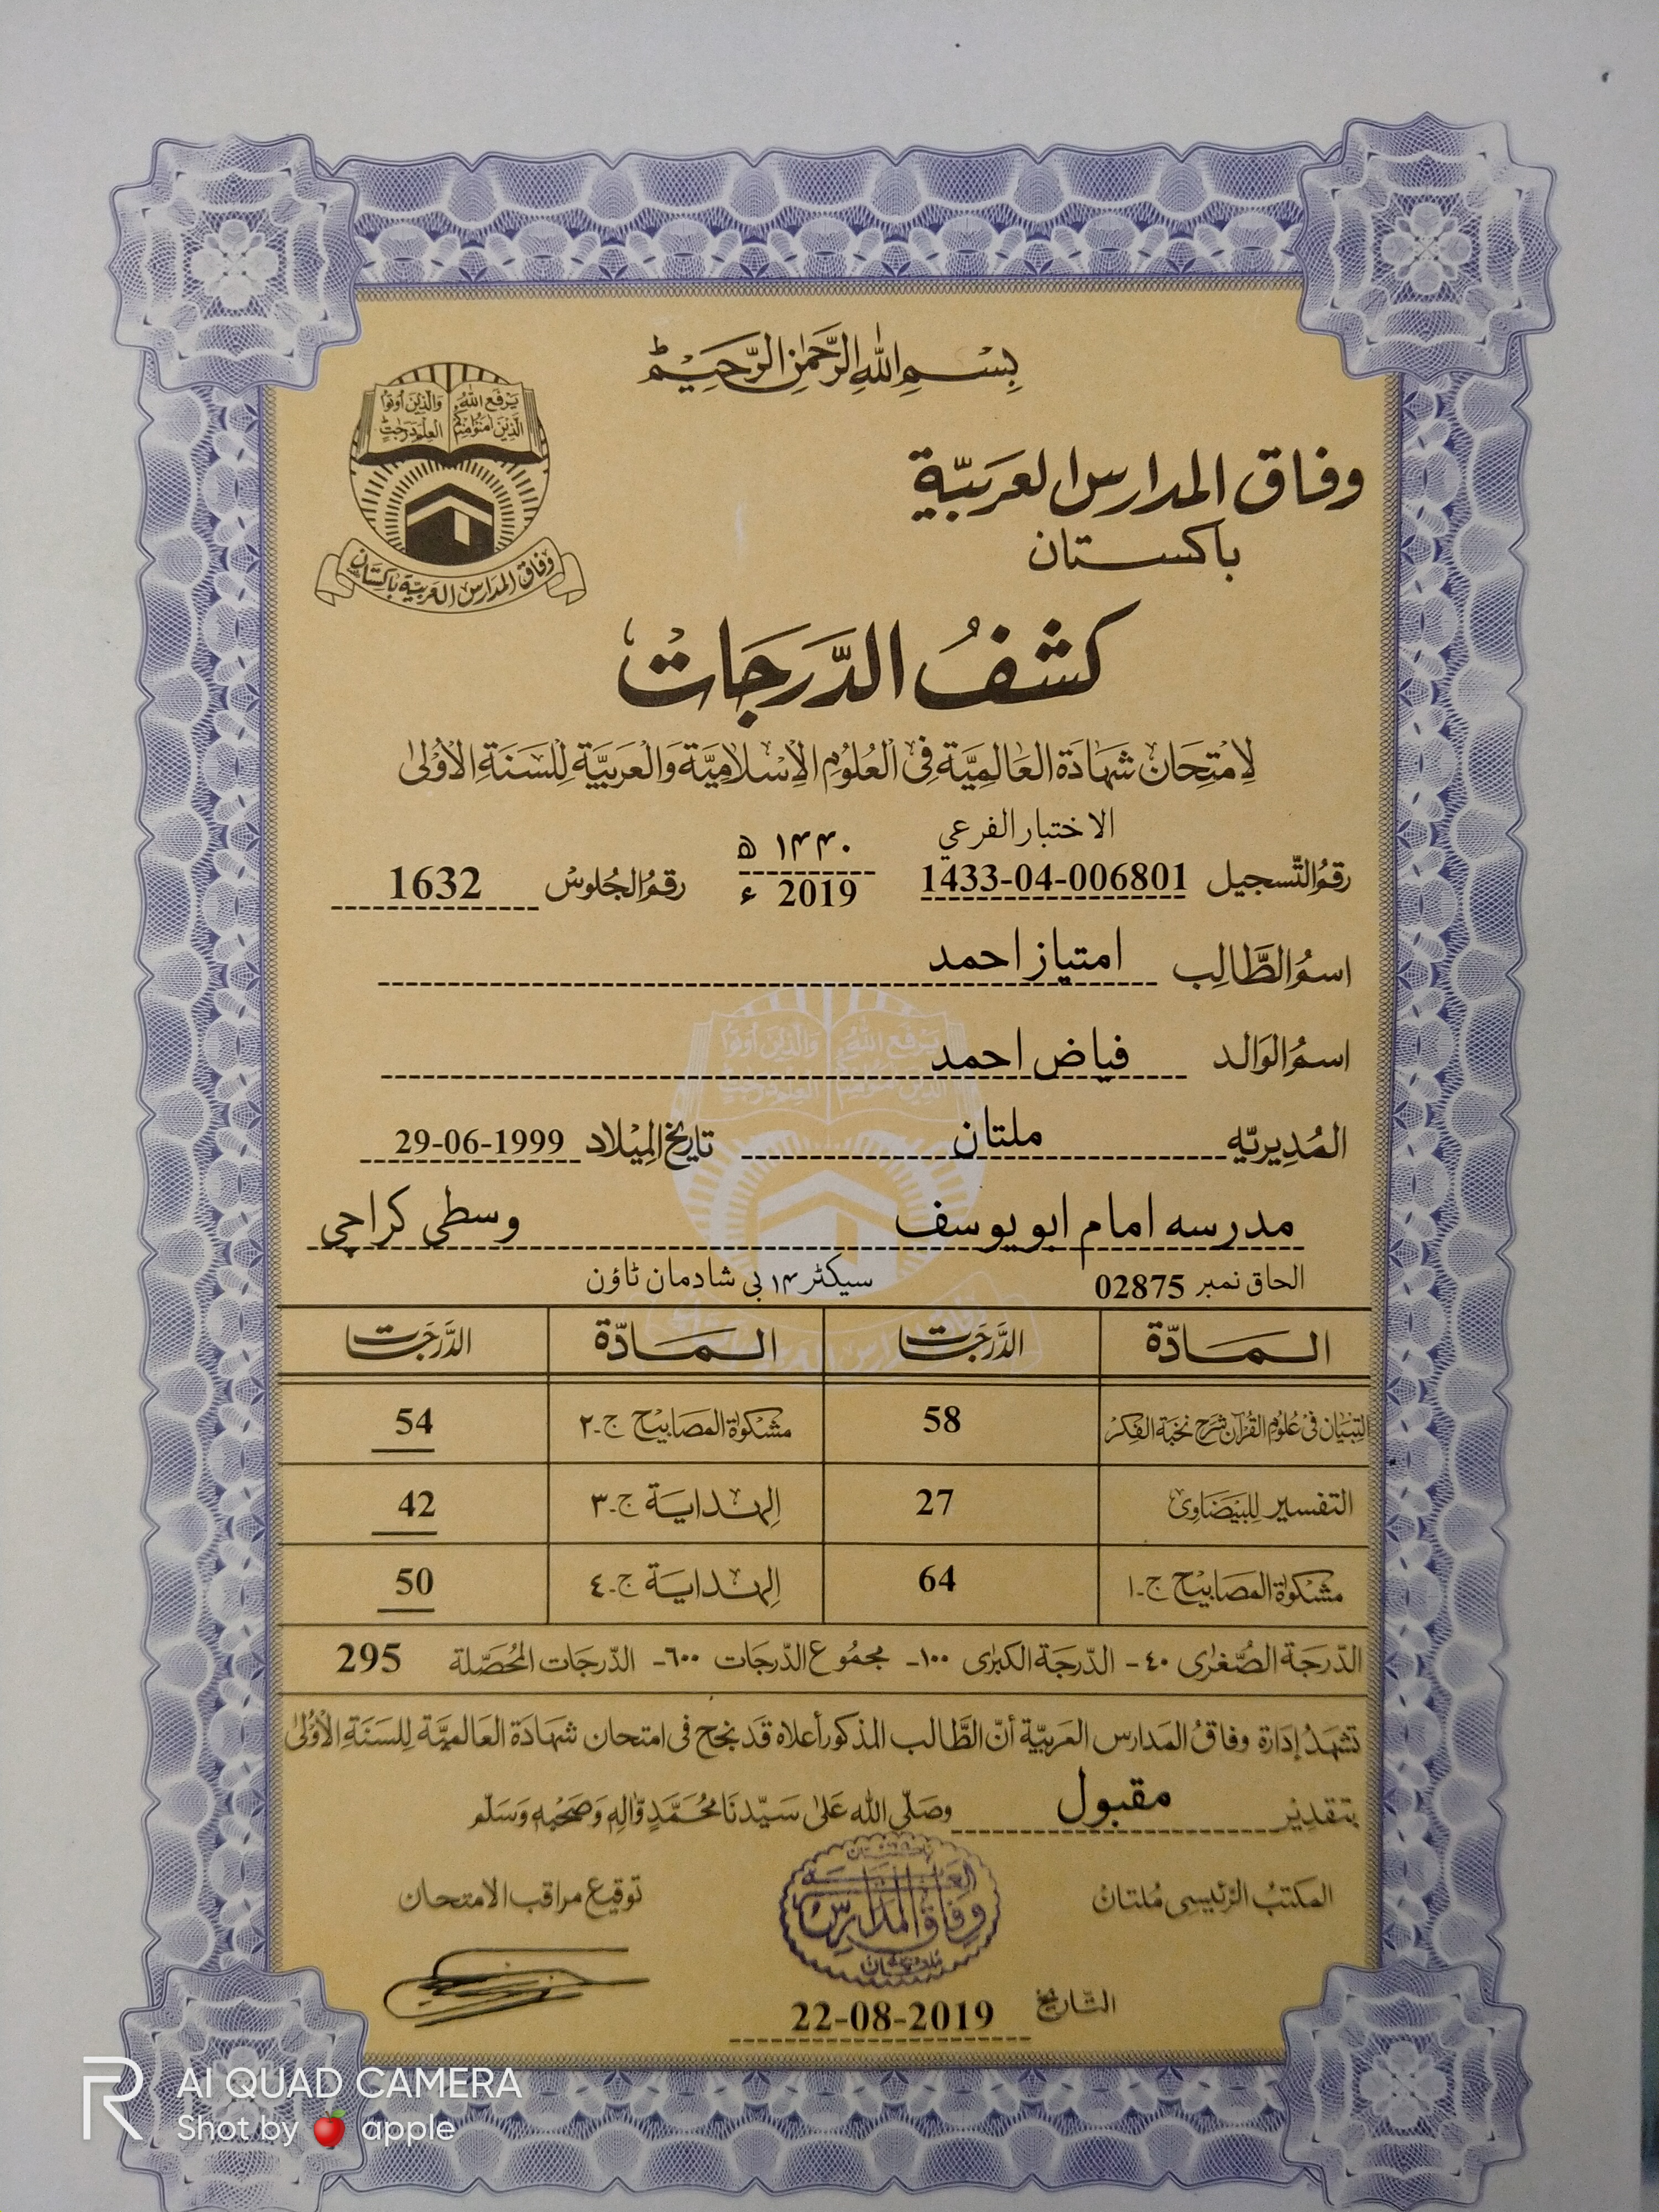 بِسْمِ اللهِ الرَّحْمٰنِ الرَّحِيْمِ
يَرْفَعِ اللهُ الَّذِيْنَ اٰمَنُوْا مِنْكُمْ
وَالَّذِيْنَ اُوْتُوا الْعِلْمَ دَرَجٰتٍ
وفاق المدارس العربيّة باكستان
وفاق المدارس العربيّة
باكستان
كشفُ الدَّرَجَات
لِامْتِحَان شَهَادَة العَالَمِيَّة فِى الْعُلُوْمِ الْاِسْلَامِيَّة وَالْعَرَبِيَّة لِلسَّنَةِ الْاُوْلٰى
الاختبار الفرعي
رقمُ التّسجيل 1433-04-006801 ۱۴۴۰ ھ 2019 ء رقمُ الجُلوس 1632
اسمُ الطَّالِب امتیاز احمد
اسمُ الوَالد فیاض احمد
المُدِيريّه ملتان تاريخ المِيْلاد 29-06-1999
مدرسه امام ابو یوسف وسطی کراچی
الحاق نمبر 02875 سیکٹر ۱۴ بی شادمان ٹاؤن
المَادّة الدَّرَجَات المَادّة الدَّرَجَات
التِّبْيَان فى عُلُوْمِ القُرآن شَرح نخبَة الفِكَر 58 مشكوٰة المصَابيْح ج-٢ 54
التفسير لِلبَيْضَاوِى 27 الهداية ج-٣ 42
مشكوٰة المصَابيْح ج-١ 64 الهداية ج-٤ 50
الدّرجَة الصُّغرٰى ٤٠- الدّرجَة الكبرٰى ١٠٠- مجمُوع الدّرجات ٦٠٠- الدّرجات المُحصّلة 295
تشهَدُ إدَارة وفاقُ المَدارس العَربيّة أنّ الطَّالب المذكور أعلاه قَد نجح فى امتحان شهَادَة العَالميَّة لِلسَنَةِ الْأُوْلٰى
بتقدِير مقبول وصَلّى الله عَلىٰ سَيّدنَا مُحَمَّدٍ وَّاٰلِهٖ وَصَحْبِهٖ وَسَلّم
المكتبُ الرّئيسى مُلتانْ توقيع مراقب الامتحان
وفاق المدارس
التّاريخ 22-08-2019
AI QUAD CAMERA
Shot by 🍎 apple